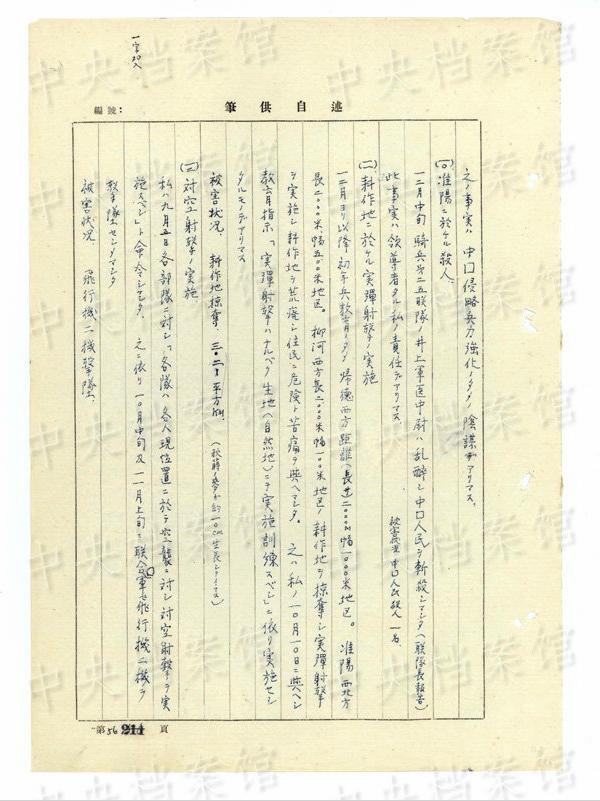 述自供筆
編號:
一字加入
之ノ事実ハ中口侵略兵力強化ノタメノ陰謀デアリマス。
(一)淮陽ニ於ケル殺人.
一二月中旬騎兵第二五联隊ノ井上軍医中尉ハ乱酔シ中口人民ヲ斬殺シマシタ(联隊長報告)
此事実ハ領導者タル私ノ責任デアリマス
被害状況 中口人民殺人 一名.
(二)耕作地ニ於ケル実彈射撃ノ実施
一二月ヨリ以降初年兵教育ノタメ帰德西方距離(長サ二〇〇〇M幅一〇〇〇米地区。淮陽西北方
長二〇〇〇米、幅五〇〇米地区。柳河西方長二〇〇〇米幅一〇〇米地区ノ耕作地ヲ掠奪シ実彈射撃
ヲ実施シ耕作地ヲ荒廃シ住民ニ危険ト苦痛ヲ與ヘマシタ。之ハ私ノ一〇月一〇日ニ與ヘシ
教育指示「実彈射撃ハナルベク生地(自然地)ニテ実施訓練スベシ」ニ依リ実施セシ
タルモノデアリマス
被害状況. 耕作地掠奪. 三・二 平方粁 (秋蒔ノ麥ガ約一〇cm生長シテイマス)
(三)対空射撃ノ実施
私ハ九月五日各部隊ニ対シ「各隊ハ各人現位置ニ於テ空襲ニ対シ対空射撃ヲ実
施スベシ」ト命令シマシタ. 之ニ依リ一〇月中旬及一一月上旬ニ联合軍ノ飛行機二機ヲ
撃墜セシメマシタ
被害状況. 飛行機二機撃墜.
第56 214 頁
中央档案馆